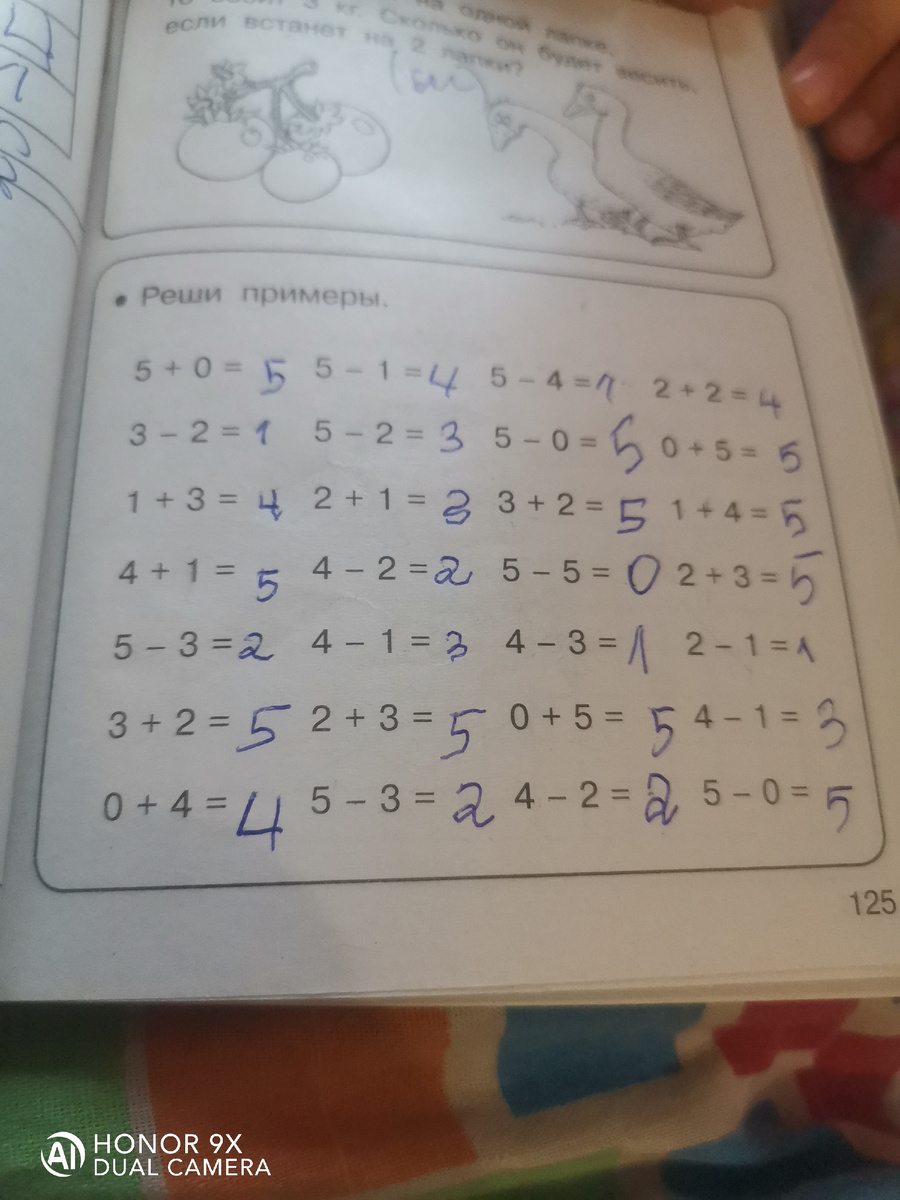 на одной лапке,
3 кг. Сколько он будет весить,
если встанет на 2 лапки?
• Реши примеры.
5 + 0 = 5 5 – 1 = 4 5 – 4 = 1 2 + 2 = 4
3 – 2 = 1 5 – 2 = 3 5 – 0 = 5 0 + 5 = 5
1 + 3 = 4 2 + 1 = 3 3 + 2 = 5 1 + 4 = 5
4 + 1 = 5 4 – 2 = 2 5 – 5 = 0 2 + 3 = 5
5 – 3 = 2 4 – 1 = 3 4 – 3 = 1 2 – 1 = 1
3 + 2 = 5 2 + 3 = 5 0 + 5 = 5 4 – 1 = 3
0 + 4 = 4 5 – 3 = 2 4 – 2 = 2 5 – 0 = 5
125
HONOR 9X
DUAL CAMERA